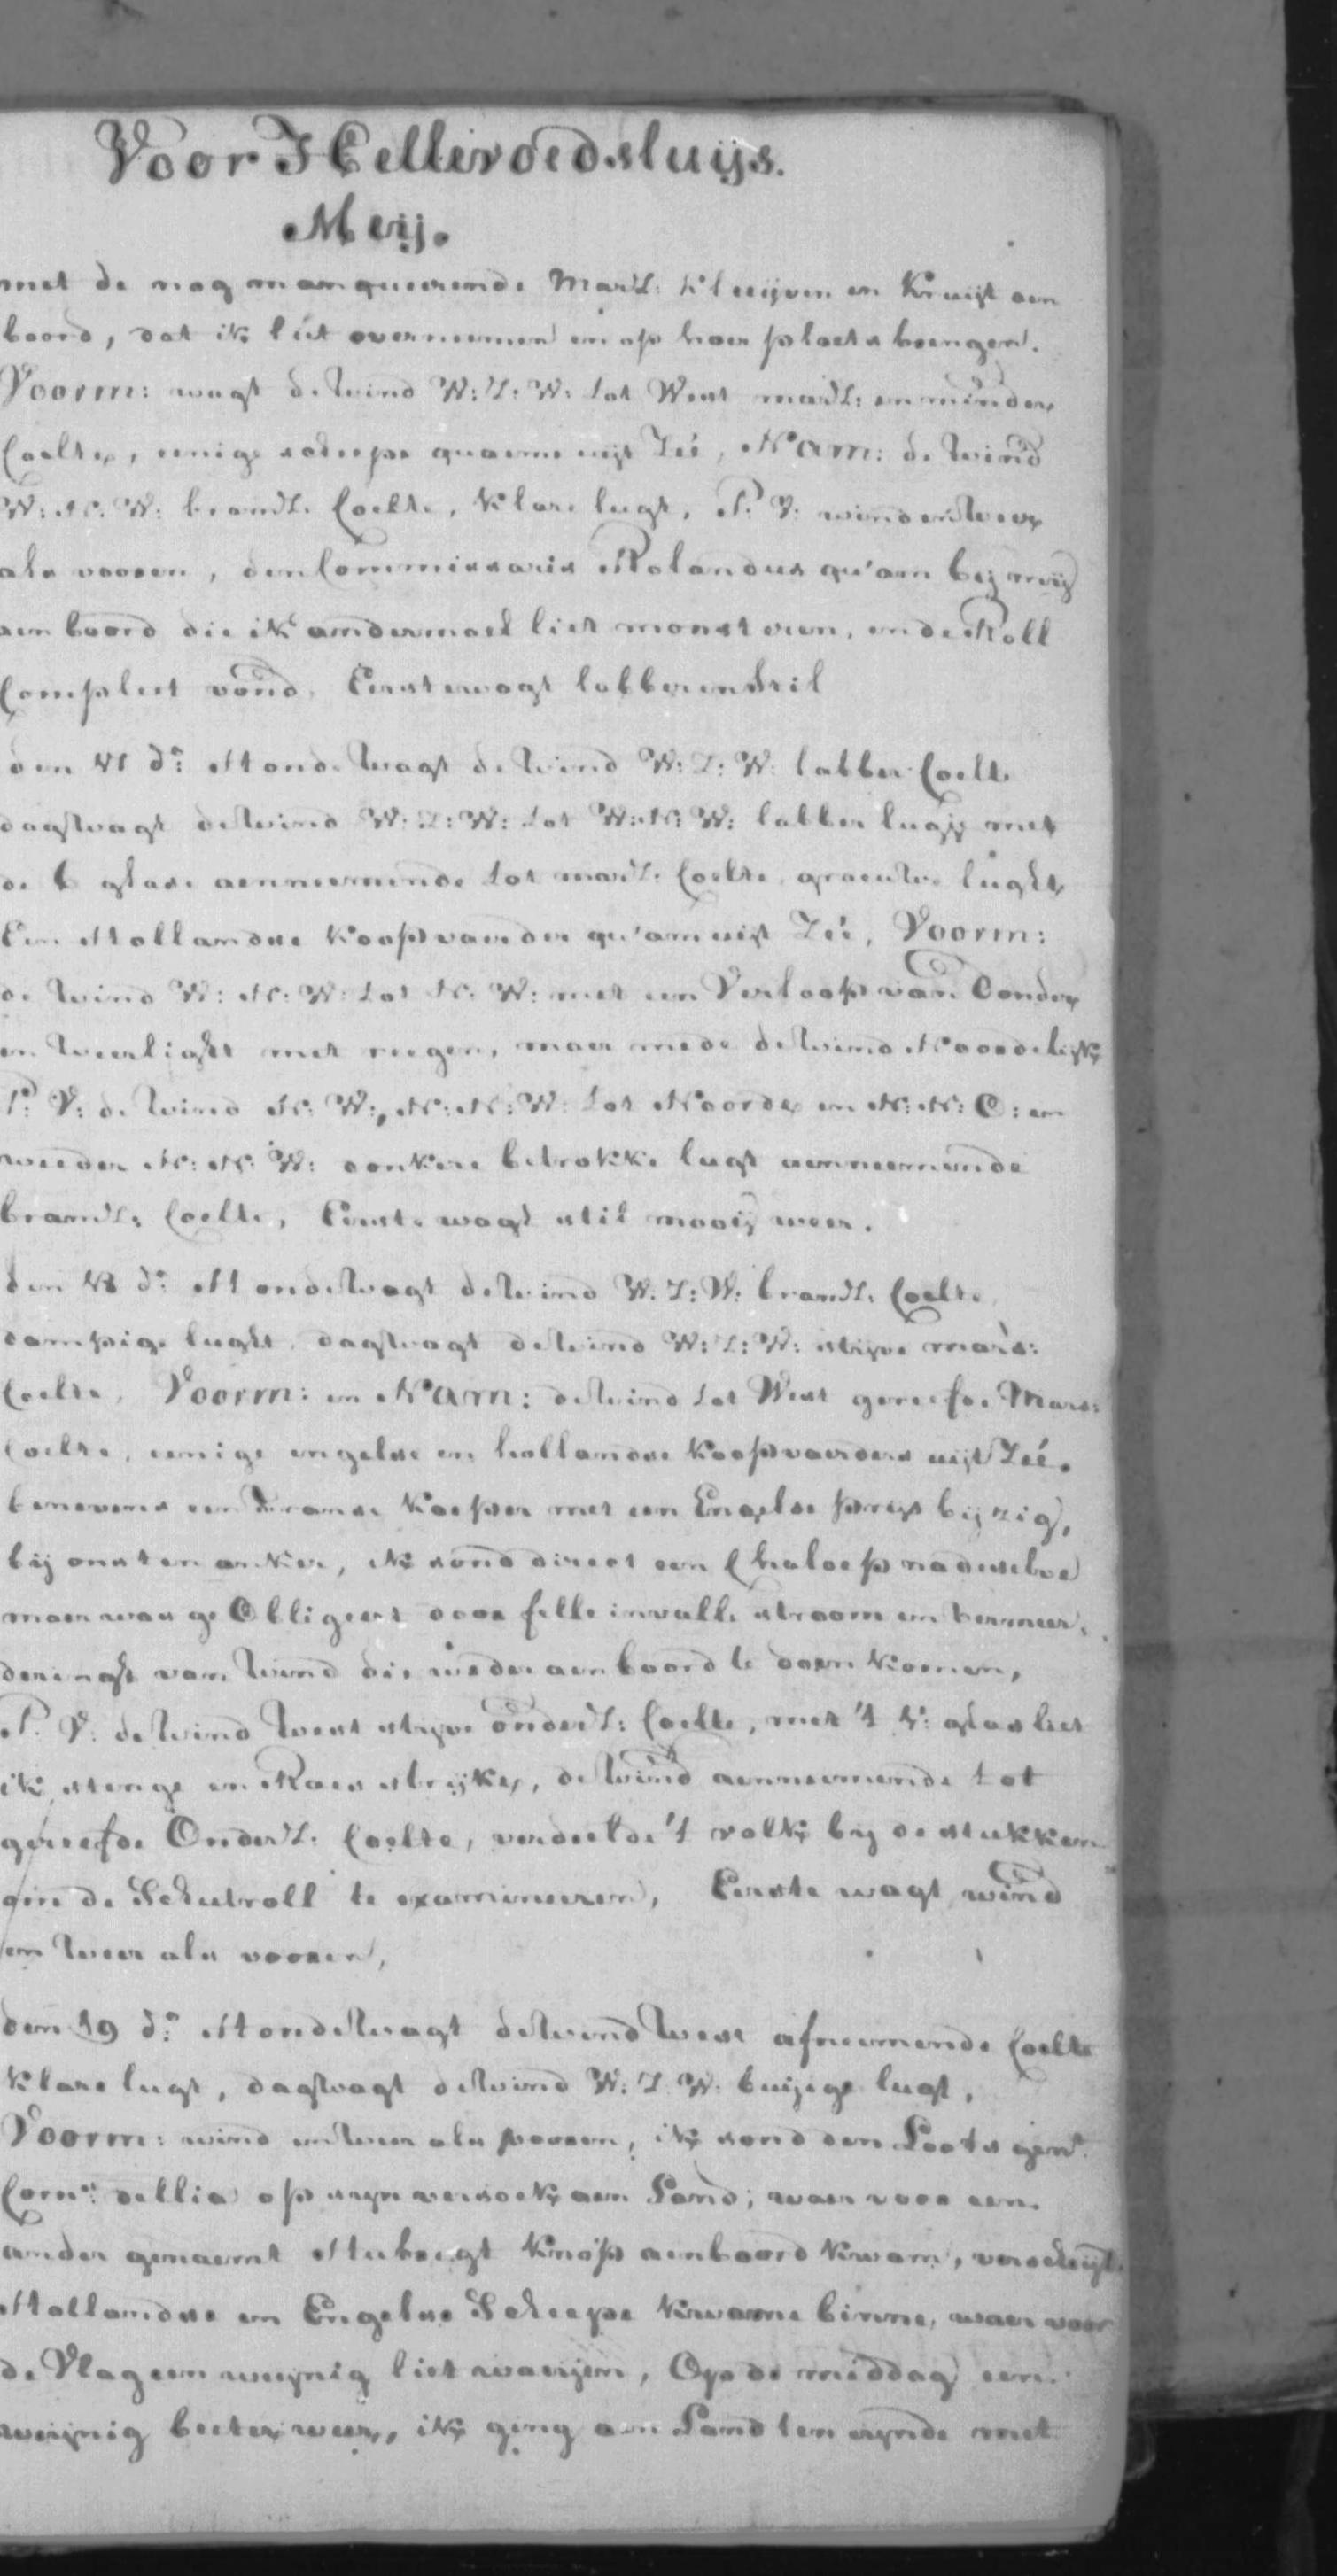 Voor Hellevoedsluijs.
Meij.
met de nog manqueerende Mars: kluijven en Kruijt aen
boord, dat ik liet overneemen en op haer plaets brengen.
Voorm: wagt de wind W:Z:W: tot West mars: en minder
Coelte, eenige scheepe quaeme uijt Zée, N'am: de wind
W:N:W: brands: Coelte, klare lugt, P: V: wind en weer
als vooren, den Commissaris Rolandus qu'am bij mij
aen boord die ik andermael liet monsteren, en de Roll
Compleet vond, Eerste wagt labber en stil
den 17 d:o Honde wagt de wind W:Z:W: labber Coelte
dagwagt de wind W:Z:W: tot W:N:W: labber lugje met
de 6 glase aenneemende tot mars: Coelte, graeuwe lught,
Een Hollandse koopvaerder qu'am uijt Zée, Voorm:
de wind W:N:W: tot N:W: met een Verloop van Donder
en weerlight met reegen, maer mede de wind Noordelijk
P: V: de wind N:W:, N:N:W: tot Noorde en N:N:O: en
weeder N:N:W: donkere betrokke lugt aenneemende
brands: Coelte, Eerste wagt stil mooij weer.
den 18 d:o Honde wagt de wind W:Z:W: brands: Coelte,
dampige lught, dagwagt de wind W:Z:W: stijve mars:
Coelte, Voorm: en N'am: de wind tot West gereefde Mars:
Coelte, eenige engelse en hollandse koopvaerders uijt Zée.
benevens een Franse Kaeper met een Engelse prijs bij zig,
bij ons ten anker, ik sond direct een Chaloep na deselve
maer was geObligeert door felle invalle stroom en vermeer,
deringh van wind die weder aen boord te doen komen,
P: V: de wind West stijve onders: Coelte, met 't 4: glas liet
ik, stenge en Raas strijke, de wind aenneemende tot
gereefde Onders: Coelte, verdeelde 't volk bij de stukken
om de Schutroll te examineeren, Eerste wagt wind
en weer als vooren,
den 19 d:o Honde wagt de wind West afneemende Coelte
klare lugt, dagwagt de wind W:Z:W: buijige lugt,
Voorm: wind en weer als vooren, ik sond den Loots gen:t
Corn:s dellia op sijn versoek aen Land, waer voor een
ander genaemt Hubregt Knop aen boord kwam, verscheijde
Hollandse en Engelse Scheepe kwame binne, waer voor
de Vlag een weijnig liet waeijen, Op de middag een
weijnig beeter weer, ik ging aen Land ten eijnde met